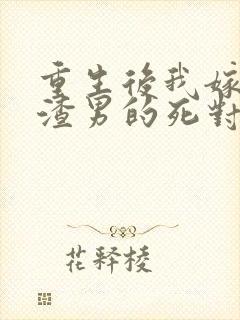 重生後我嫁
渣男的死對
花釋棱